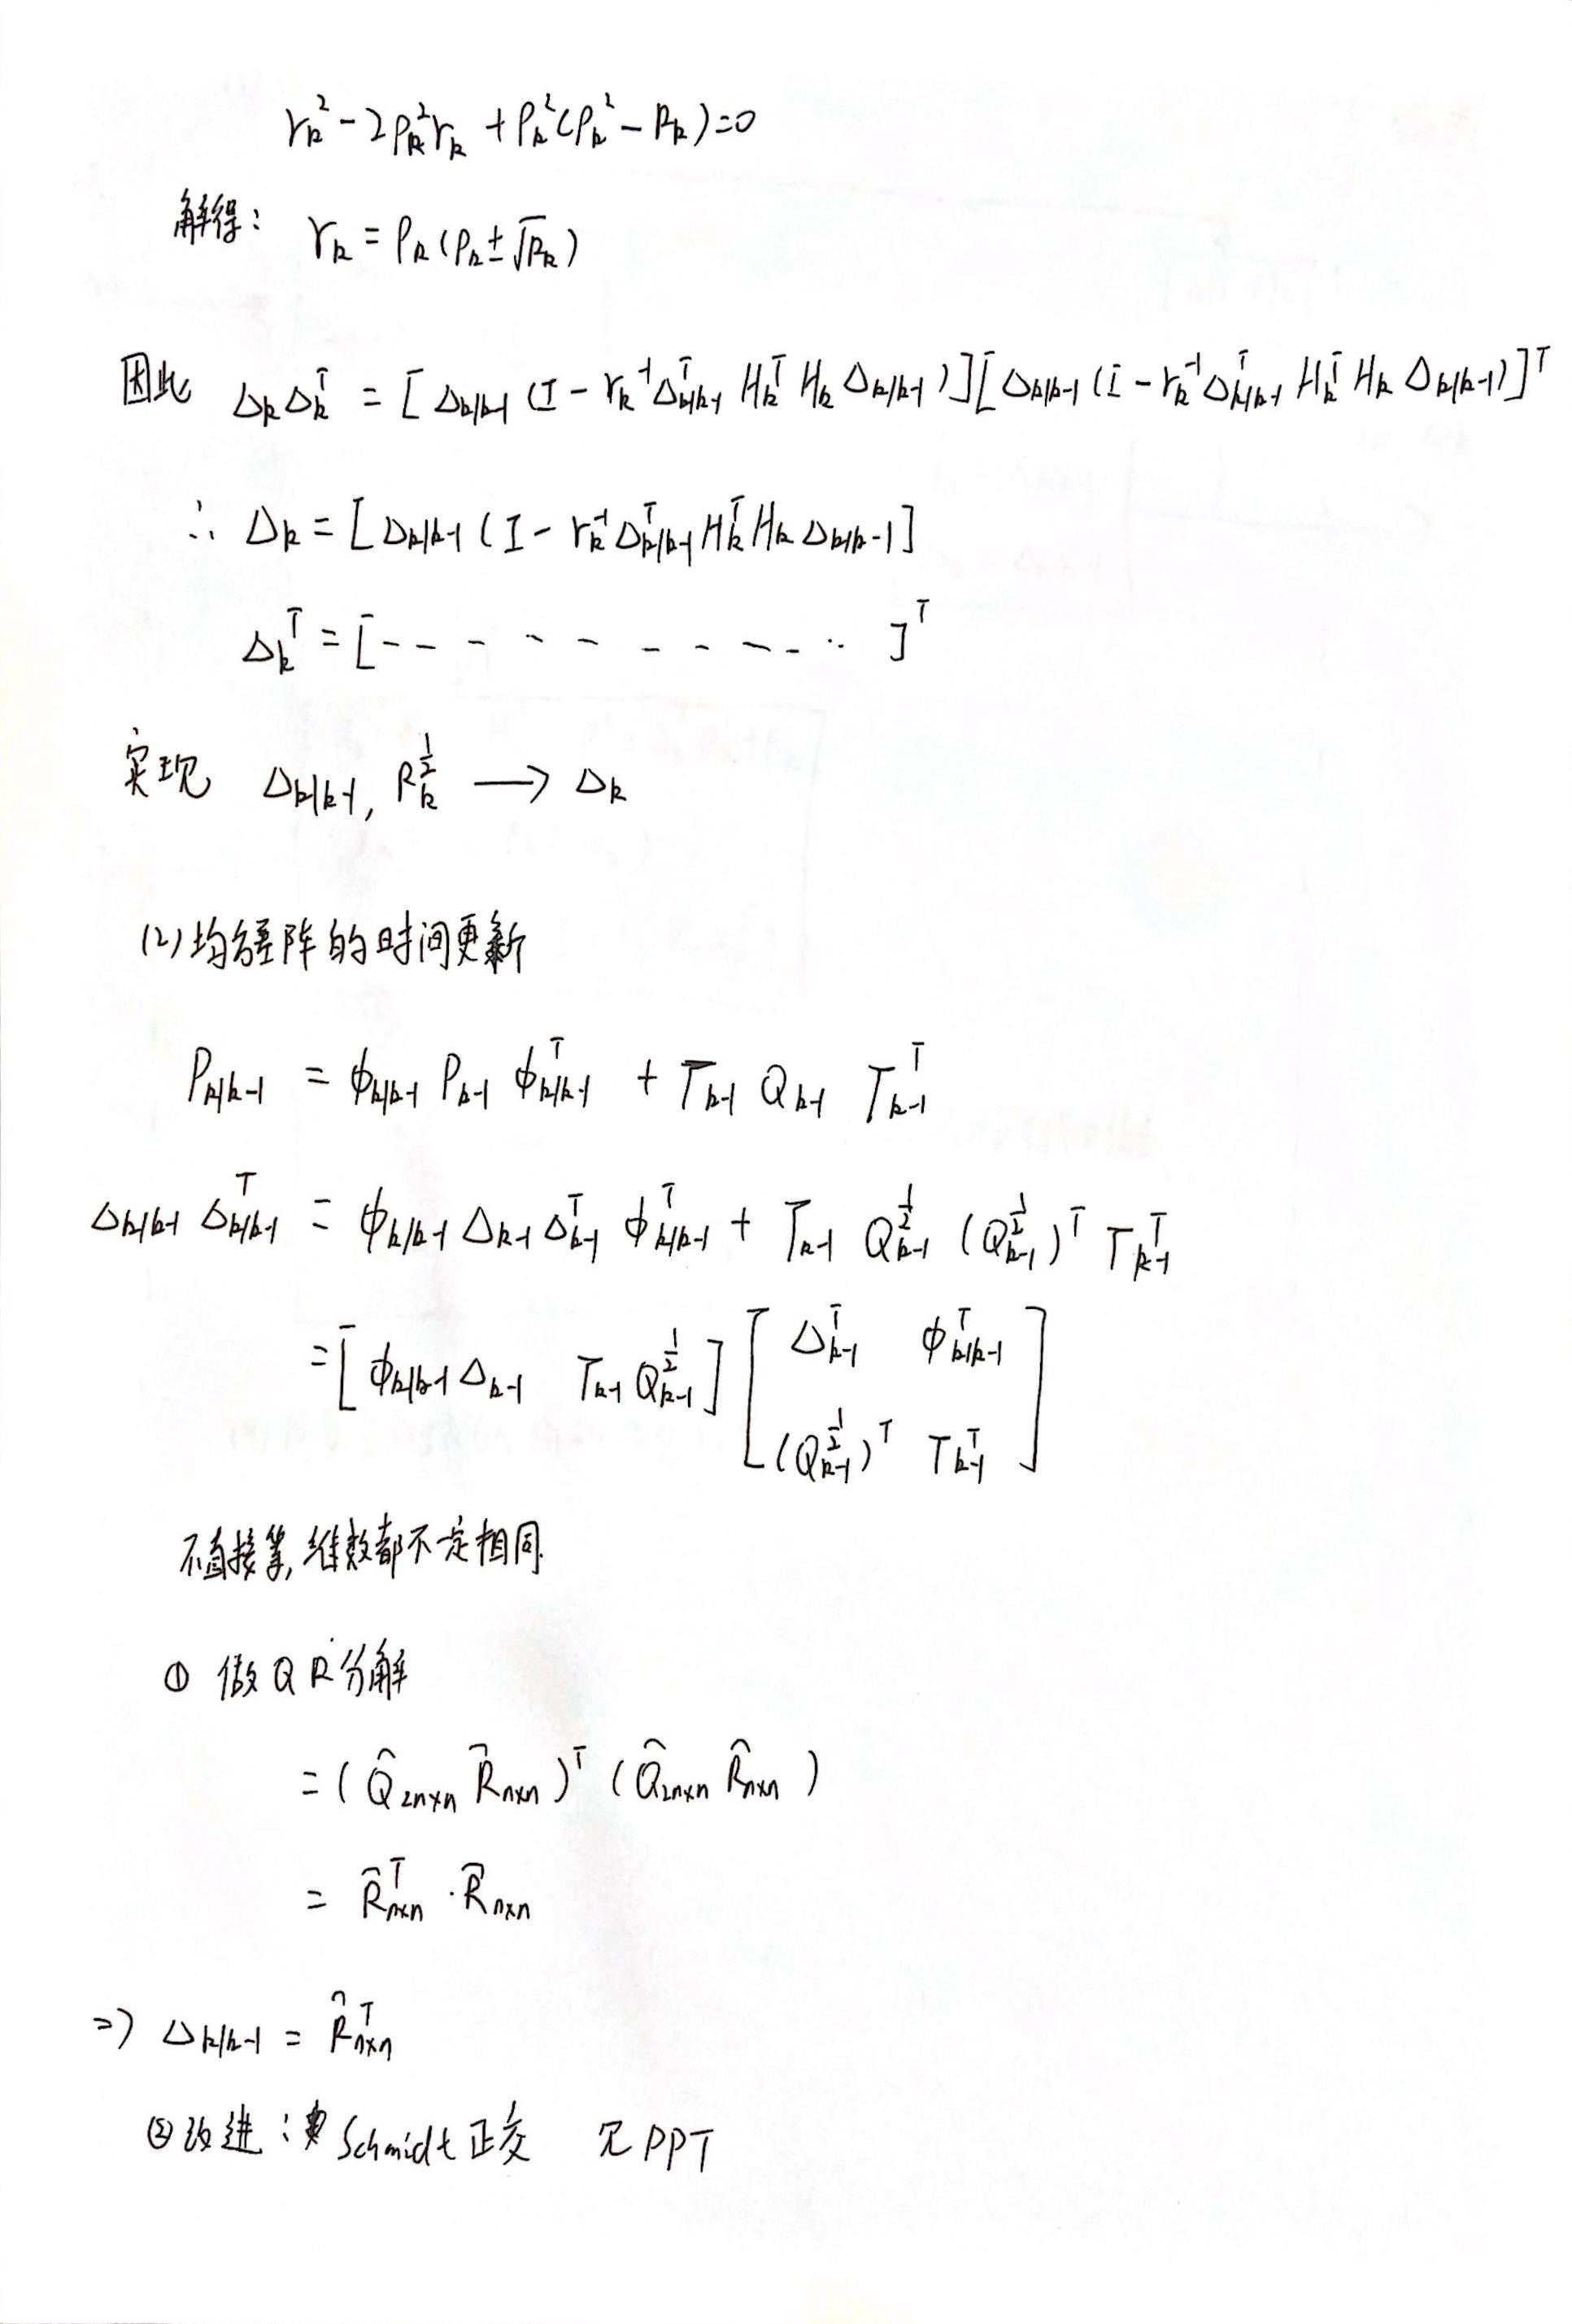 r_k^2 - 2ρ_k^2 r_k + ρ_k^2(ρ_k^2 - R_k) = 0
解得: r_k = ρ_k(ρ_k ± √R_k)
因此 Δ_k Δ_k^T = [Δ_{k/k-1}(I - r_k^{-1} Δ_{k/k-1}^T H_k^T H_k Δ_{k/k-1})][Δ_{k/k-1}(I - r_k^{-1} Δ_{k/k-1}^T H_k^T H_k Δ_{k/k-1})]^T
∴ Δ_k = [Δ_{k/k-1}(I - r_k^{-1} Δ_{k/k-1}^T H_k^T H_k Δ_{k/k-1}]
Δ_k^T = [- - - - - - - - - ·· ]^T
实现 Δ_{k/k-1}, R_k^{1/2} ⟶ Δ_k
(2) 均方差阵的时间更新
P_{k/k-1} = ϕ_{k/k-1} P_{k-1} ϕ_{k/k-1}^T + Γ_{k-1} Q_{k-1} Γ_{k-1}^T
Δ_{k/k-1} Δ_{k/k-1}^T = ϕ_{k/k-1} Δ_{k-1} Δ_{k-1}^T ϕ_{k/k-1}^T + Γ_{k-1} Q_{k-1}^{1/2} (Q_{k-1}^{1/2})^T Γ_{k-1}^T
= [ϕ_{k/k-1} Δ_{k-1} Γ_{k-1} Q_{k-1}^{1/2}] [Δ_{k-1}^T ϕ_{k/k-1}^T
(Q_{k-1}^{1/2})^T Γ_{k-1}^T]
不直接算, 维数都不一定相同.
① 做QR分解
= (Q̂_{2n×n} R̂_{n×n})^T (Q̂_{2n×n} R̂_{n×n})
= R̂_{n×n}^T · R̂_{n×n}
⇒ Δ_{k/k-1} = R̂_{n×n}^T
② 改进: Schmidt正交 见PPT